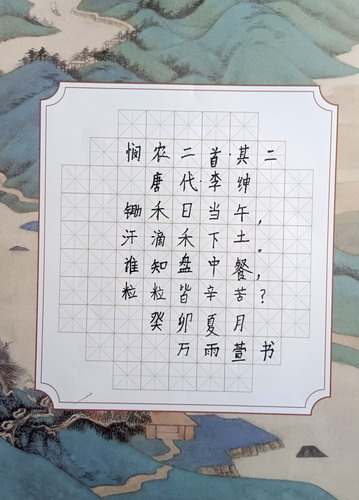 悯农二首·其二
唐代·李绅
锄禾日当午，
汗滴禾下土。
谁知盘中餐，
粒粒皆辛苦？
癸卯夏月
万雨萱书